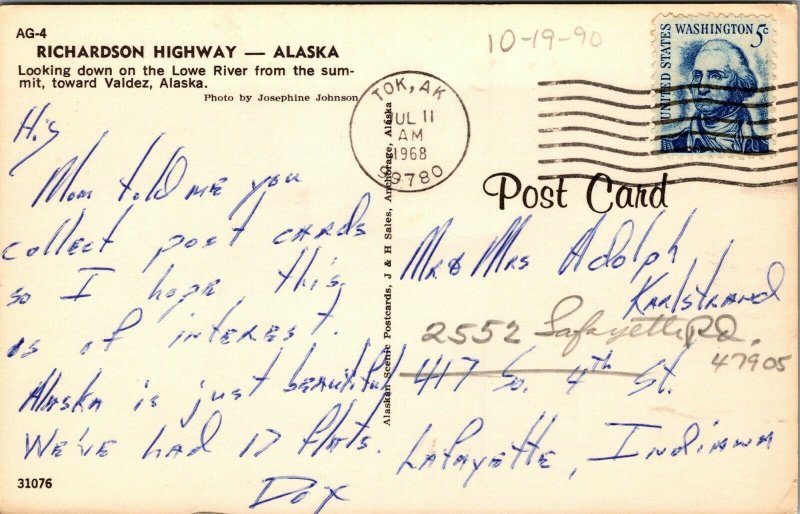 AG-4
RICHARDSON HIGHWAY — ALASKA
Looking down on the Lowe River from the sum-
mit, toward Valdez, Alaska.
Photo by Josephine Johnson
10-19-90
TOK, AK
JUL 11
AM
1968
99780
UNITED STATES
WASHINGTON 5c
Post Card
Alaskan Scenic Postcards, J & H Sales, Anchorage, Alaska
Hi,
Mom told me you
collect post cards
so I hope this
is of interest.
Alaska is just beautiful
We've had 17 flats.
Dox
Mr & Mrs Adolph
Karlstrand
2552 Lafayette RD.
47905
417 So. 4th St.
Lafayette, Indiana
31076